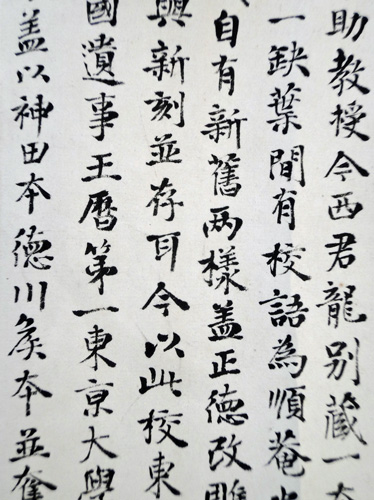 助教授今西君龍別蔵一本
一缺葉間有校語為順菴
自有新舊两樣盖正德改雕
興新刻並存耳今以此校東
國遺事王曆第一東京大學
盖以神田本德川矦本並奪